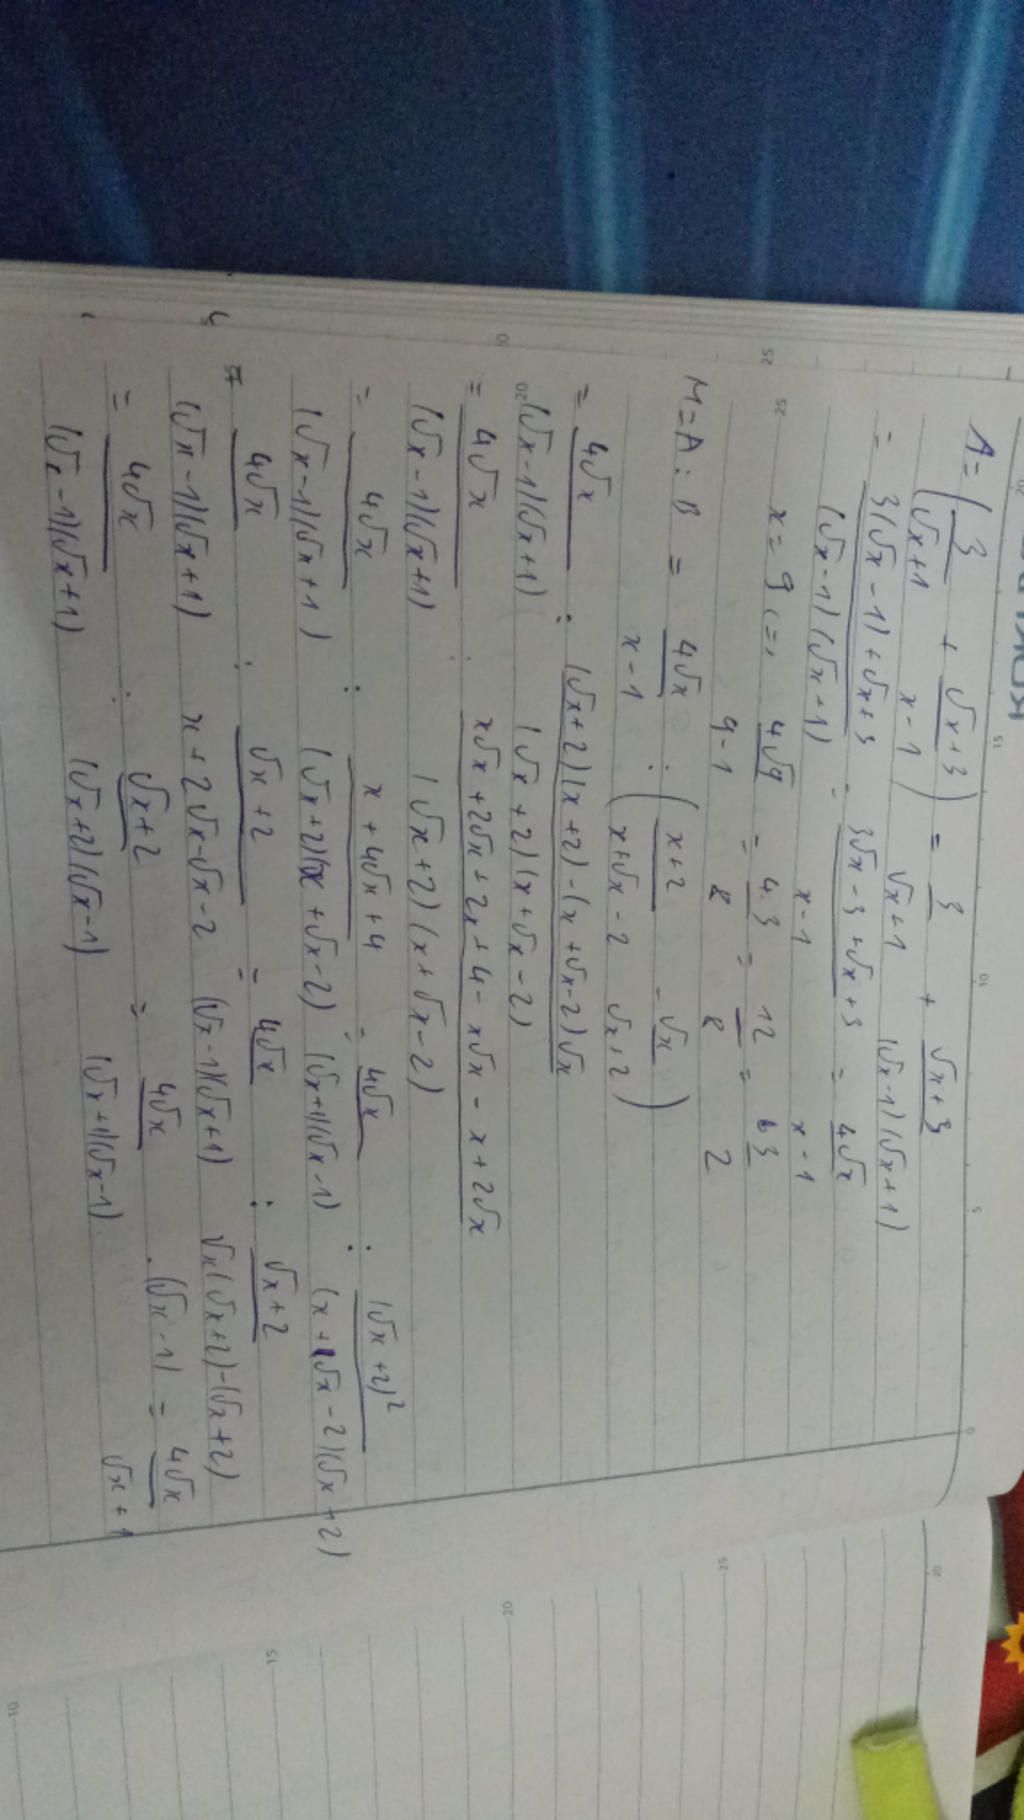 A = ( 3/(√x+1) + (√x+3)/(x-1) ) = 3/(√x+1) + (√x+3)/((√x-1)(√x+1))
= (3(√x-1)+√x+3)/((√x-1)(√x+1)) = (3√x-3+√x+3)/(x-1) = 4√x/(x-1)
x = 9 <=> 4√9/(9-1) = 4.3/8 = 12/8 = 3/2
M = A : B = 4√x/(x-1) : ( (x+2)/(x+√x-2) - √x/(√x+2) )
= 4√x/((√x-1)(√x+1)) : ((√x+2)(x+2)-(x+√x-2)√x)/((√x+2)(x+√x-2))
= 4√x/((√x-1)(√x+1)) : (x√x+2√x+2x+4-x√x-x+2√x)/((√x+2)(x+√x-2))
= 4√x/((√x-1)(√x+1)) : (x+4√x+4)/((√x+2)(x+√x-2)) = 4√x/((√x+1)(√x-1)) : (√x+2)²/((x+√x-2)(√x+2))
= 4√x/((√x-1)(√x+1)) : (√x+2)/(x+2√x-√x-2) = 4√x/((√x-1)(√x+1)) : (√x+2)/(√x(√x+2)-(√x+2))
= 4√x/((√x-1)(√x+1)) : (√x+2)/((√x+2)(√x-1)) = 4√x/((√x+1)(√x-1)) . (√x-1) = 4√x/(√x+1)
25
25
20
20
15
10
5
0
20
25
20
15
10